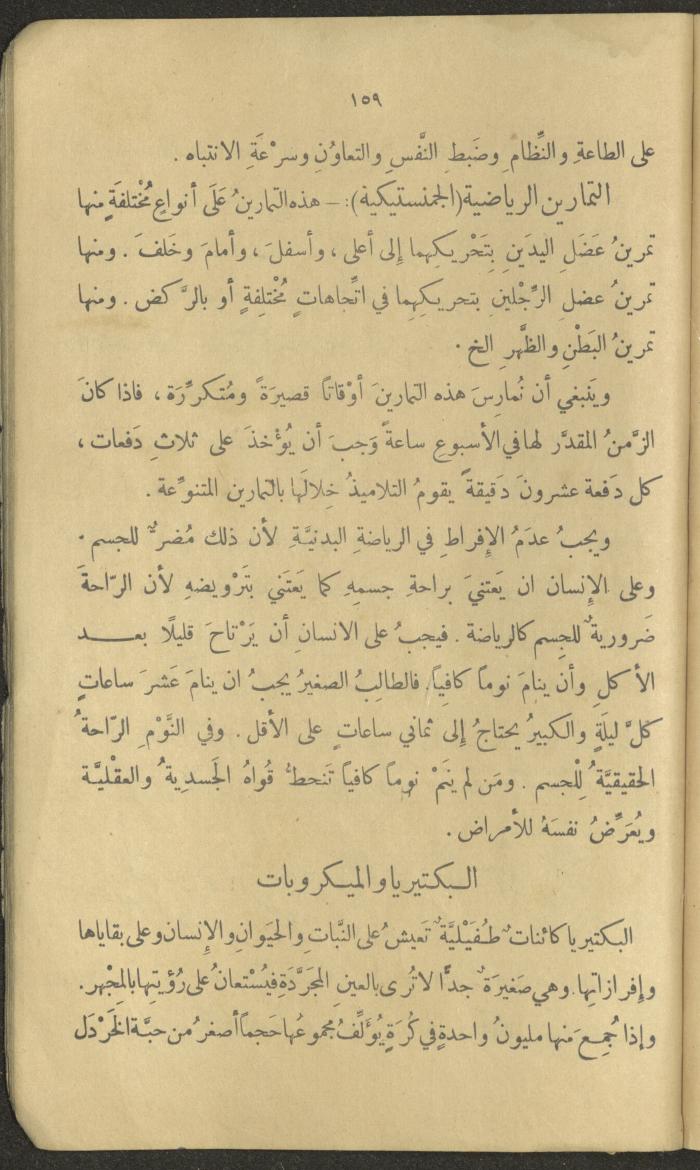 ١٥٩
على الطاعةِ والنِّظامِ وضَبطِ النَّفسِ والتعاوُنِ وسرْعَةِ الانتباه .
التمارين الرياضية (الجمنستيكية) : – هذه التمارينُ عَلَى أنواعٍ مُخْتلفَةٍ منها
تمرينُ عَضَلِ اليدَينِ بِتَحْريكِهما إِلى أعلى ، وأسفلَ ، وأمامَ وخَلفَ . ومنها
تمرينُ عضلِ الرِّجْلينِ بتحريكِهِما في اتِّجاهاتٍ مُخْتلِفةٍ أو بالرَّكض . ومنها
تمرينُ البَطْنِ والظَّهرِ الخ .
وينبغي أن نُمارِسَ هذه التمارينَ أوْقاتاً قصيرَةً ومُتكرِّرَة ، فاذا كانَ
الزَّمنُ المقدَّر لها في الأسبوعِ ساعةً وَجبَ أن يُؤْخذَ على ثلاثِ دَفعات ،
كل دَفعة عشرونَ دَقيقةً يقومُ التلاميذُ خِلالَها بالتمارين المتنوِّعة .
ويجبُ عدَمُ الإِفراطِ في الرياضةِ البدنيَّةِ لأن ذلك مُضرٌّ للجسم .
وعلى الإِنسان ان يَعتنيَ براحةِ جسمِهِ كما يَعتَني بتَرْويضهِ لأن الرّاحةَ
ضَروريةٌ للجِسم كالرياضة . فيجبُ على الانسانِ أن يَرْتاحَ قليلًا بعد
الأكلِ وأن ينامَ نوماً كافِياً . فالطالبُ الصغيرُ يجبُ ان ينامَ عَشرَ ساعاتٍ
كلَّ ليلَةٍ والكبيرُ يحتاجُ إِلى ثماني ساعاتٍ على الأقل . وفي النَّوْمِ الرّاحةُ
الحقيقيَّةُ لِلْجسم . ومَن لم يَنَمْ نوماً كافياً تَنحطُّ قُواهُ الجَسديةُ والعقْليَّة
ويُعَرِّضُ نفسَهُ للأمراض .
البكتيريا والميكروبات
البكتيريا كائناتٌ طُفَيْليَّةٌ تَعيشُ على النَّباتِ والحيَوانِ والإِنسان وعلى بقاياها
وإِفرازاتِها . وهي صَغيرَةٌ جدًّا لا تُرى بالعينِ المجَرَّدَةِ فيُسْتعانُ على رُؤْيتِها بالمِجْهر .
وإِذا جُمِعَ مَنها مليونُ واحدةٍ في كُرَةٍ يُؤَلِّفُ مجموعُها حَجماً أصغرُ من حبَّة الخَرْدَل